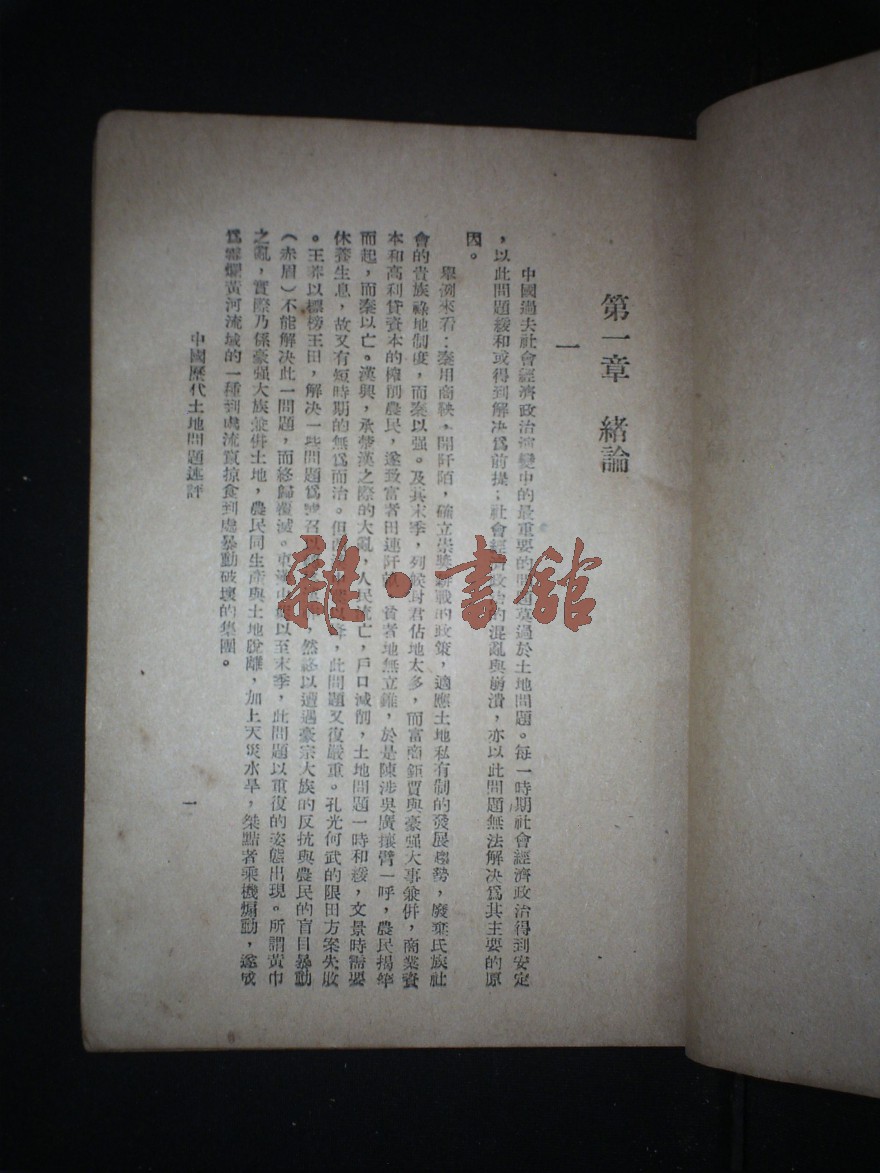 第一章 緒論
一
中國過去社會經濟政治演變中的最重要的問題莫過於土地問題。每一時期社會經濟政治得到安定
，以此問題緩和或得到解決爲前提；社會經濟政治的混亂與崩潰，亦以此問題無法解決爲其主要的原
因。
舉例來看：秦用商鞅，開阡陌，確立崇獎耕戰的政策，適應土地私有制的發展趨勢，廢棄氏族社
會的貴族祿地制度，而秦以强。及其末季，列候封君佔地太多，而富商鉅賈與豪强大事兼併，商業資
本和高利貸資本的榨削農民，遂致富者田連阡陌，貧者地無立錐，於是陳涉吳廣攘臂一呼，農民揭竿
而起，而秦以亡。漢興，承楚漢之際的大亂，人民流亡，戶口減削，土地問題一時和緩，文景時需要
休養生息，故又有短時期的無爲而治。但 此問題又復嚴重。孔光何武的限田方案失敗
。王莽以標榜王田，解決一些問題爲號召 然終以遭遇豪宗大族的反抗與農民的盲目暴動
（赤眉）不能解決此一問題，而終歸覆滅。東漢 以至末季，此問題以重復的姿態出現。所謂黃巾
之亂，實際乃係豪强大族兼併土地，農民同生產與土地脫離，加上天災水旱，桀黠者乘機煽動，遂成
爲糜爛黃河流域的一種到處流竄掠食到處暴動破壞的集團。
中國歷代土地問題述評
一
雜·書館